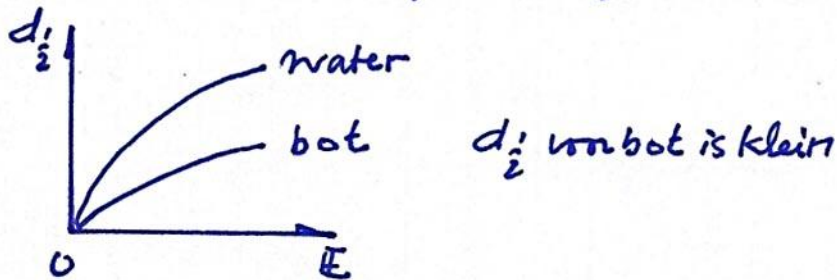 d½
water
bot
d½ van bot is klein
0
E